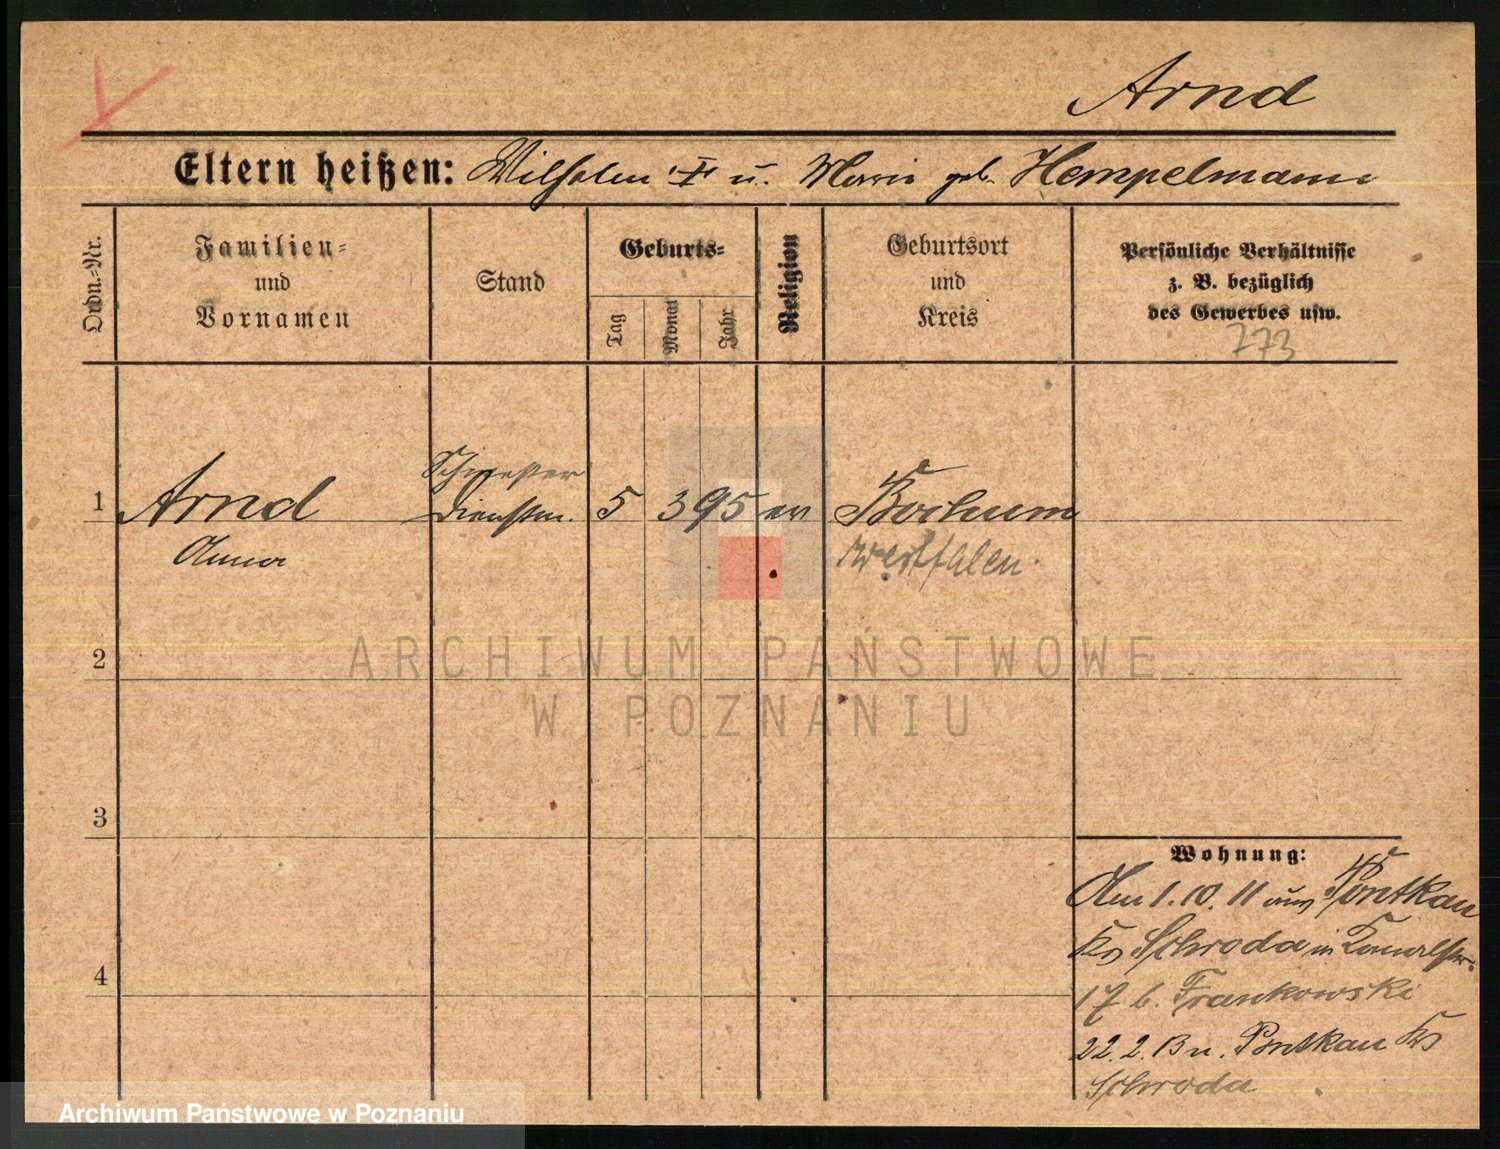 Arnd
Eltern heißen: Wilhelm "I" u. Marie geb. Hempelmann
Ordn.-Nr.
Familien- und Vornamen
Stand
Geburts-
Tag
Monat
Jahr
Religion
Geburtsort und Kreis
Persönliche Verhältnisse
z. B. bezüglich
des Gewerbes usw.
773
Schwester
1 Arnd Dienstm. 5 3 95 ev Bochum
Anna Westfalen.
2
3
4
Wohnung:
Am 1.10.11 aus Pontkau
Krs Schroda in
17 b. Frankowski
22.2.13 n. Pontkau Krs
Schroda
ARCHIWUM PAŃSTWOWE
W POZNANIU
Archiwum Państwowe w Poznaniu